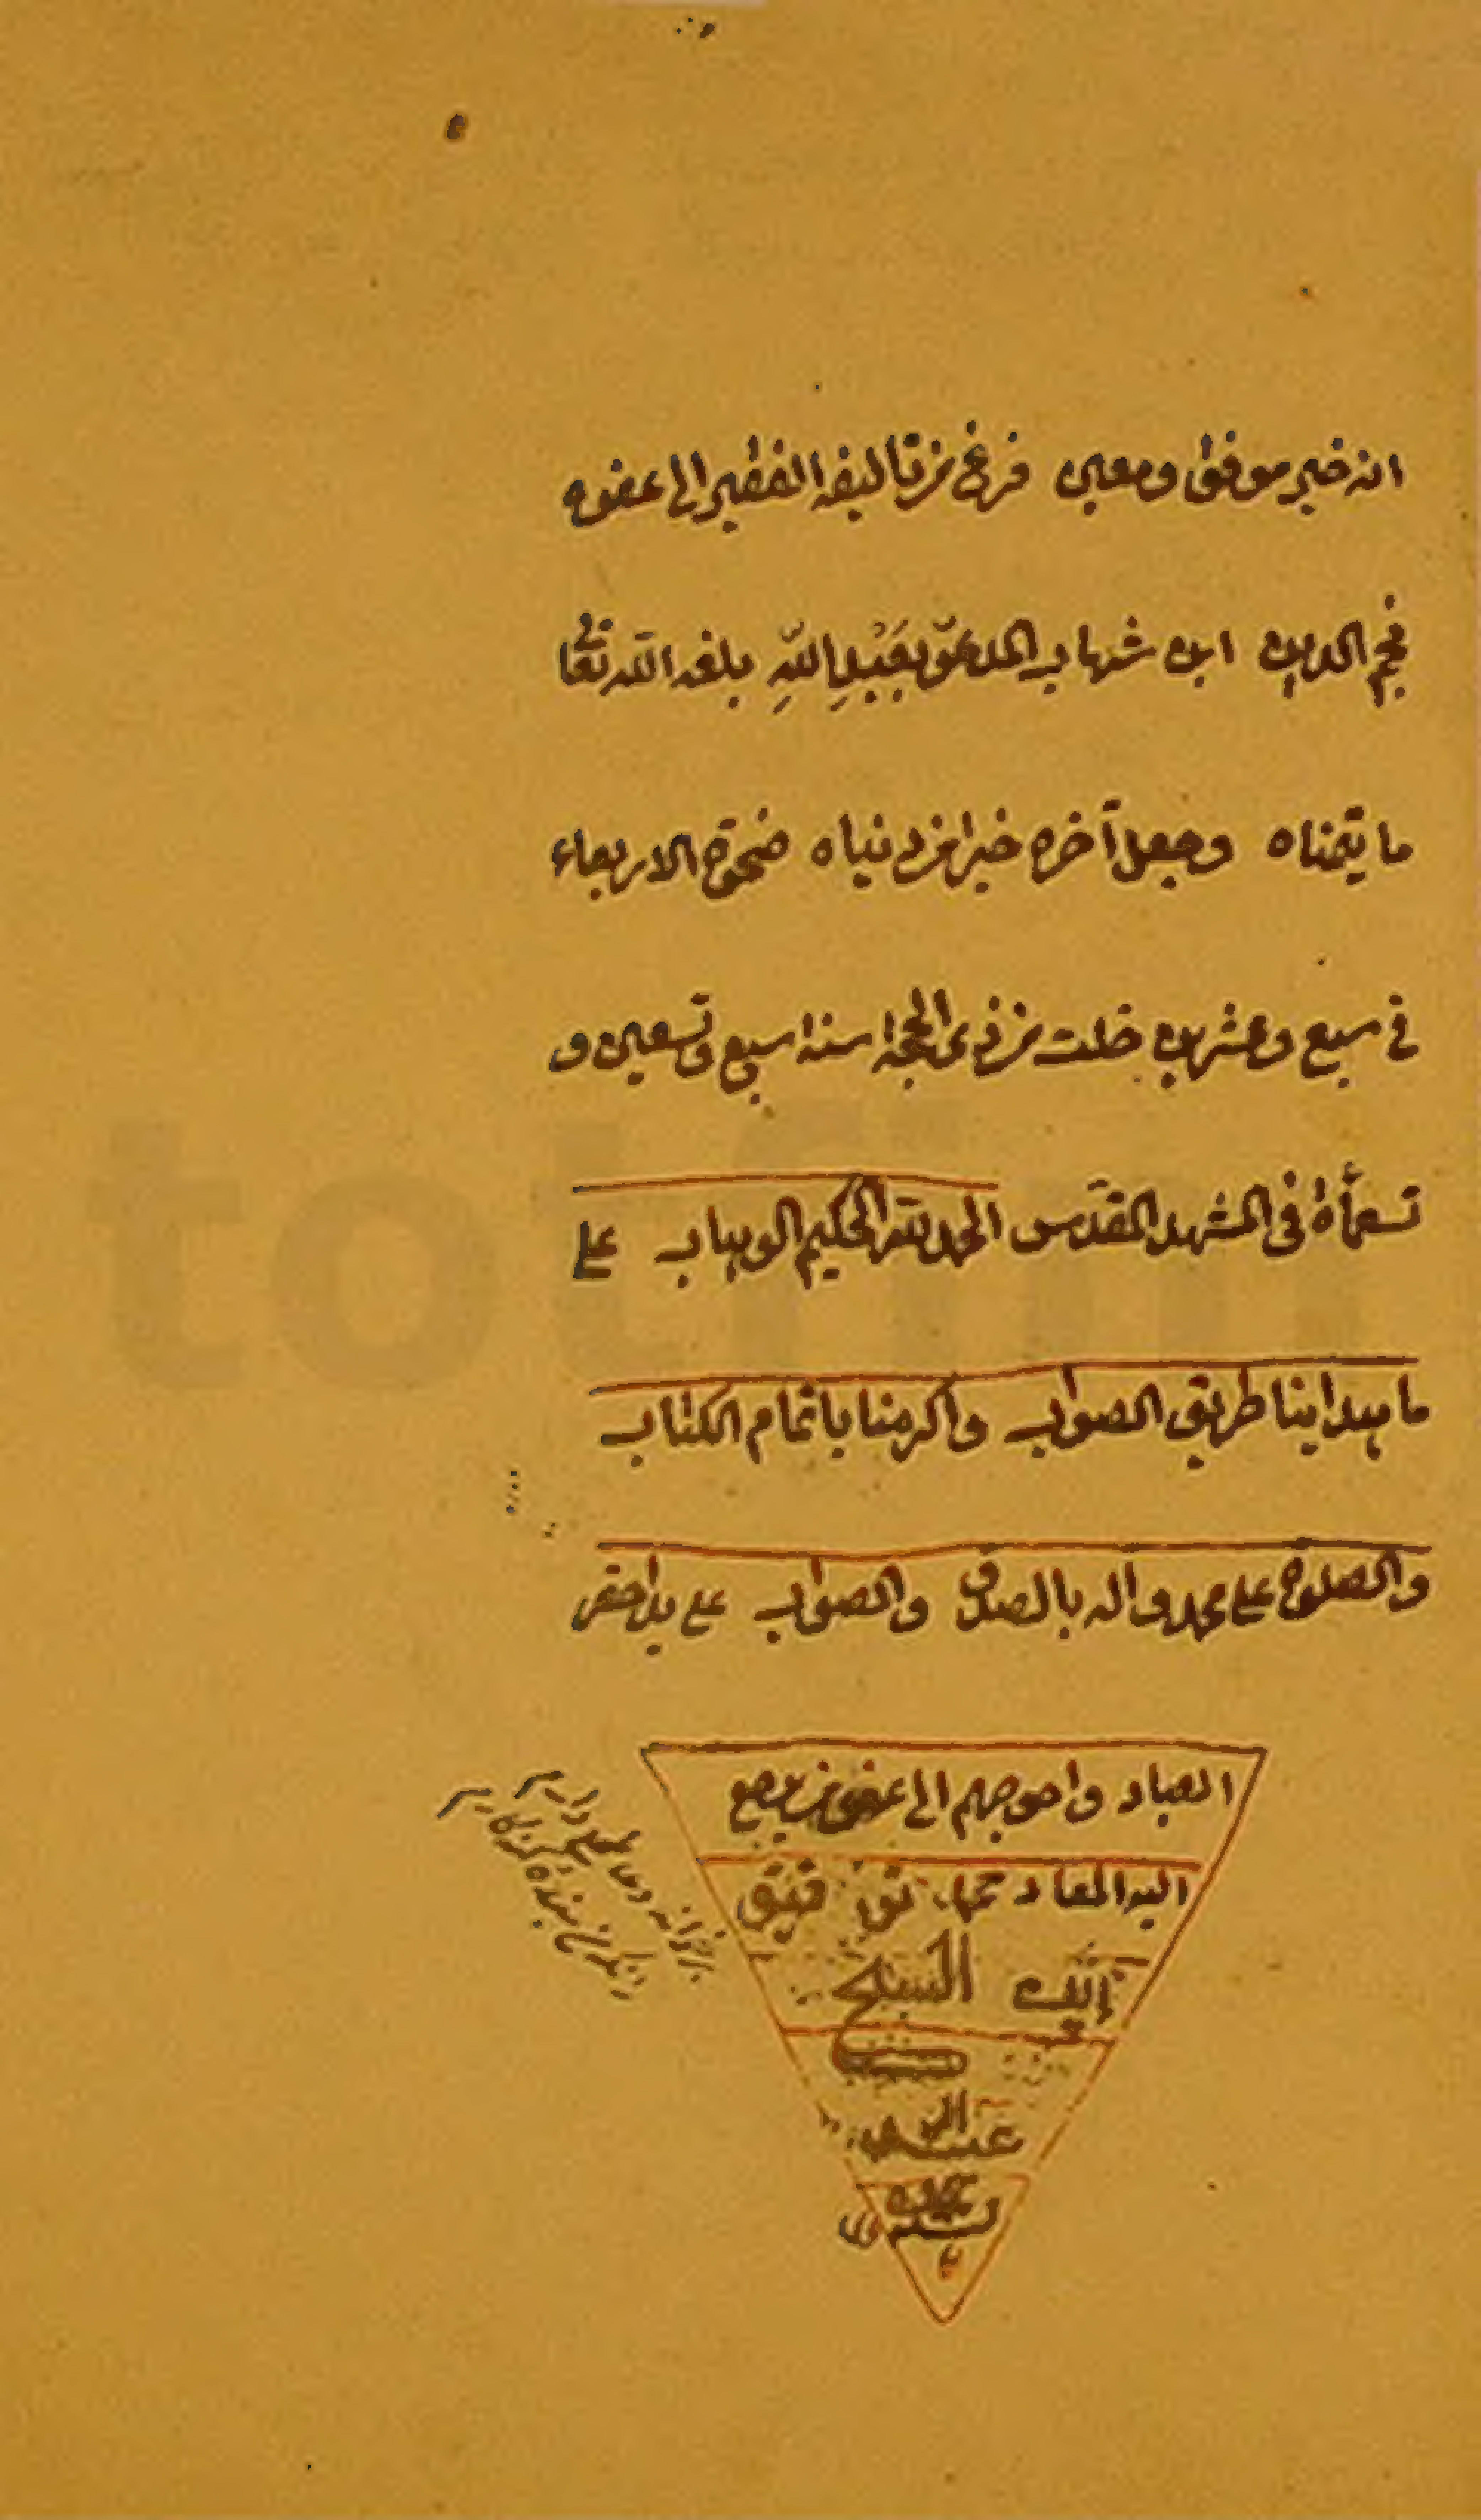 انه خير موفق ومعين فرغ من تاليفه الفقير الى عفوه
نجم الدين ابن شهاب المدعو بعَبْدِ اللهِ بلغه الله تعا
ما يتمناه وجعل آخرته خيرا من دنياه ضحوة الاربعاء
في سبع وعشرين خلت من ذى الحجة سنة سبع وتسعين و
تسعمأة فى المشهد المقدس الحمد لله الحكيم الوهاب على
ما هدانا طريق الصواب واكرمنا باتمام الكتاب
والصلوة على محمد واله بالصدق والصواب على يد احقر
العباد واحوجهم الى عفو من يرجع
اليه المعاد
الشيخ